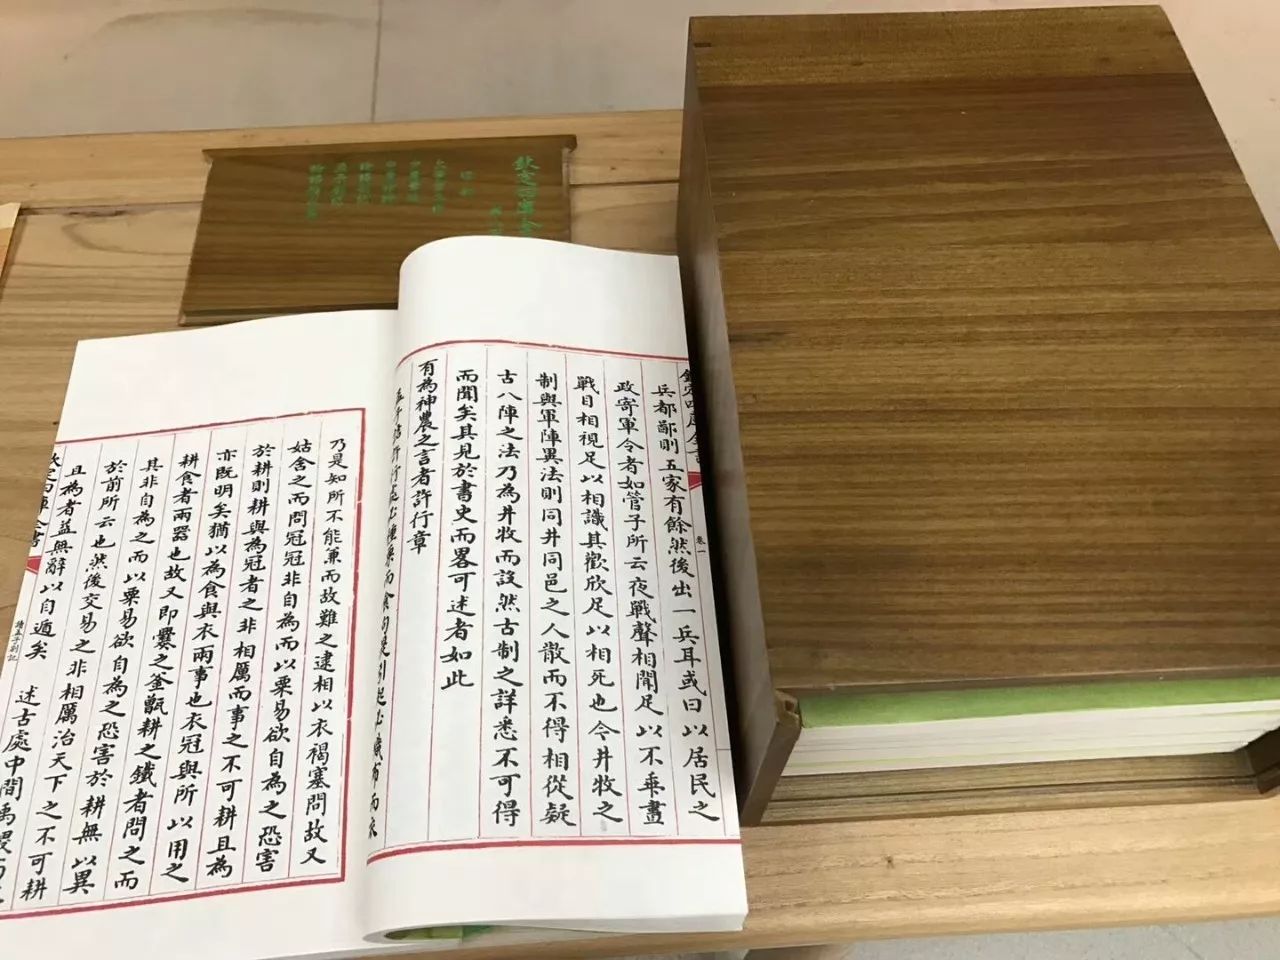 欽定四庫全
欽定四庫全書
卷一
兵都鄙則五家有餘然後出一兵耳或曰以居民之
政寄軍令者如管子所云夜戰聲相聞足以不乖晝
戰目相視足以相識其歡欣足以相死也今井牧之
制與軍陣異法則同井同邑之人散而不得相從疑
古八陣之法乃為井牧而設然古制之詳悉不可得
而聞矣其見於書史而畧可述者如此
有為神農之言者許行章
孟子詰許行處以種粟而食句提引起以織布而衣
乃是知所不能兼而故難之逮相以衣褐塞問故又
姑舍之而問冠冠非自為而以粟易欲自為之恐害
於耕則耕與為冠者之非相厲而事之不可耕且為
亦既明矣猶以為食與衣兩事也衣冠與所以用之
耕食者兩器也故又即爨之釜甑耕之鐵者問之而
其非自為之而以粟易欲自為之恐害於耕無以異
於前所云也然後交易之非相厲治天下之不可耕
且為者益無辭以自遁矣 述古處中間禹
欽定四庫全書
讀孟子劄記